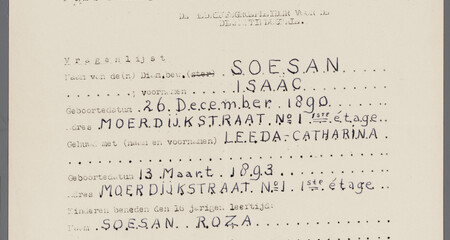 Vragenlijst
Naam van de(n) Dien.bew.(ster) SOESAN
; voornamen ISAAC
Geboortedatum 26 December 1890
adres MOERDIJKSTRAAT No 1 1ste étage
Gehuwd met (naam en voornamen) LEEDA-CATHARINA
Geboortedatum 13 Maart 1893
adres MOERDIJKSTRAAT No 1 1ste étage
Kinderen beneden den 16 jarigen leeftijd:
Naam SOESAN ROZA